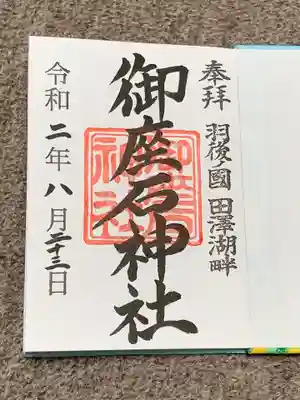 奉拝 羽後の國 田澤湖畔
御座石神社
令和二年八月二十三日